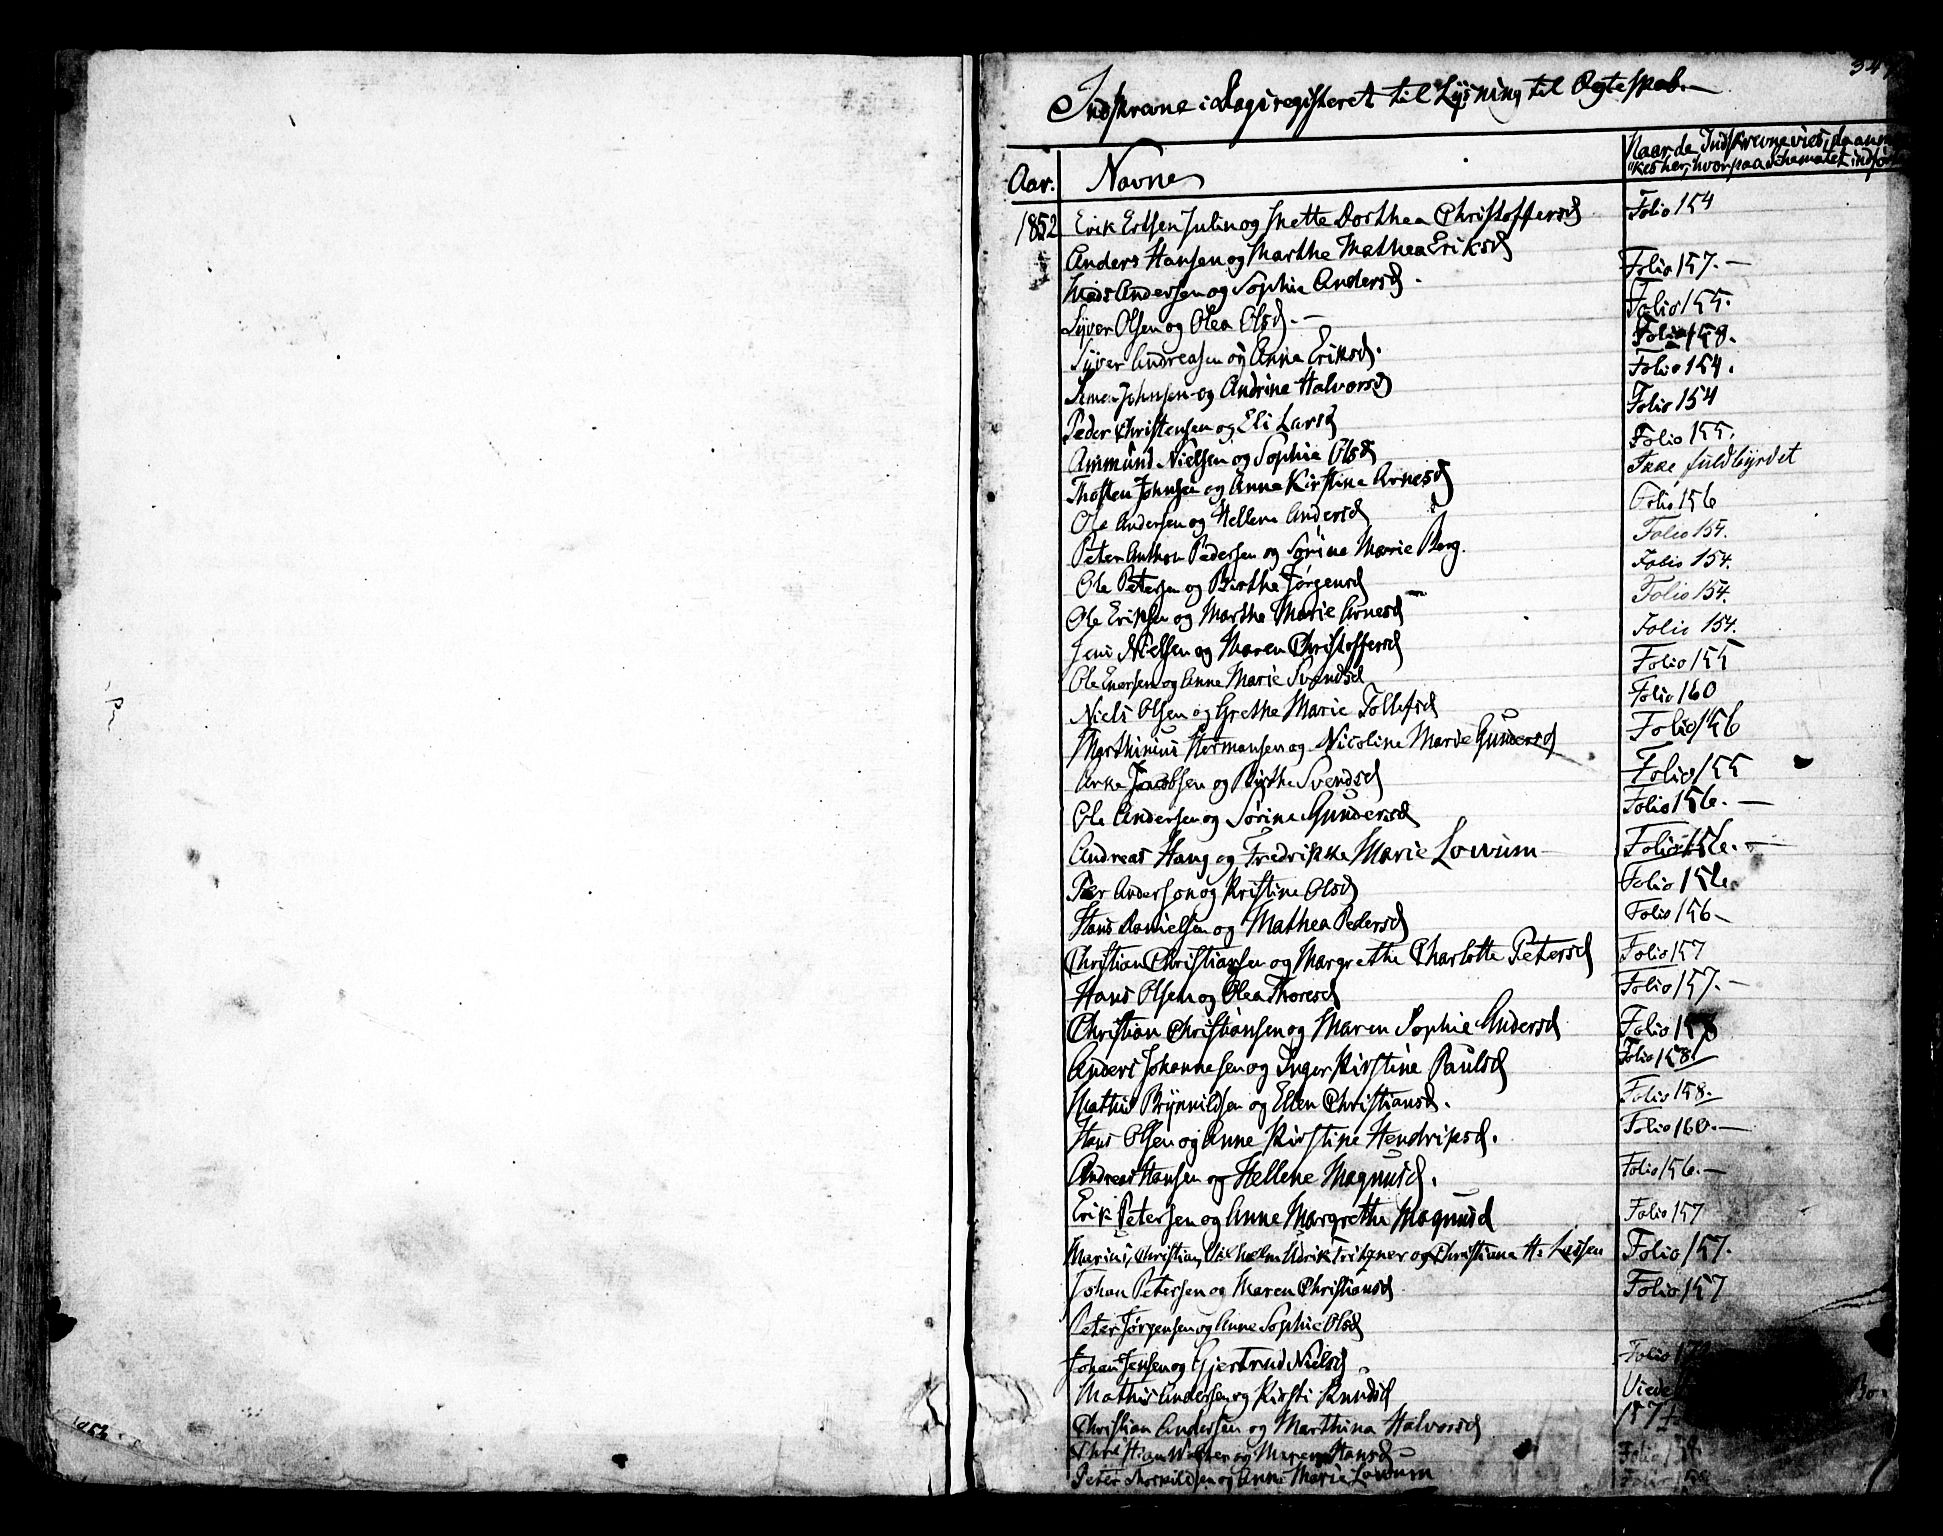 Indskrevne i Dagsregisteret til Lysning til Ægteskab.
Aar. Navne Naar de Indskrevne vies, her, hvor paa Schematet
1852 Erik Erlsen Julin og Mette Dorthea Christoffersd Folio 154
Anders Hansen og Marthe Mathea Eriksd Folio 157.
Mads Andersen og Sophie Andersd. Folio 155.
Syver Olsen og Olea Olsd. Folio 158.
Syver Andreasen og Anne Eriksd. Folio 154.
Johnsen og Andrine Halvorsd Folio 154
Peder Christensen og Eli Larsd Folio 155.
Ammund Nielsen og Sophie Olsd Ikke fuldbyrdet
Thosten Johnsen og Anne Kirstine Arnesd Folio 156
Ole Andersen og Hellene Andersd Folio 154.
Peter Anthon Pedersen og Sørine Marie Berg. Folio 154.
Ole Petersen og Birthe Jørgensd Folio 154.
Ole Eriksen og Marthe Marie Arnesd Folio 154.
Jens Nielsen og Maren Christoffersd Folio 155
Ole Enersen og Anne Marie Svendsd Folio 160
Niels Olsen og Grethe Marie Tollefsd Folio 156
Marthinius Hermansen og Nicoline Marie Gundersd Folio 155
Jacobsen og Birthe Svendsd Folio 156.
Ole Andersen og Sørine Gundersd Folio 156.
Andreas Haug og Fredrikke Marie Lowum Folio 156.
Per Anderson og Kristine Olsd Folio 156
Hans Danielsen og Mathea Pedersd Folio 157
Christian Christiansen og Margrethe Charlotte Petersd Folio 157.
Hans Olsen og Olea Thoresd
Christian Christiansen og Maren Sophie Andersd Folio 158
Anders Johannesen og Inger Kirstine Paulsd Folio 158
Mathis Brynnildsen og Ellen Christiansd. Folio 158.
Hans Olsen og Anne Kirstine Hendriksd. Folio 160.
Andreas Hansen og Hellene Magnusd. Folio 156.
Erik Petersen og Anne Margrethe Magnusd Folio 157
Marius, Christian, Vilhelm Udrik Fritzner og Christiane H. Lassen Folio 157.
Johan Petersen og Maren Christiansd Folio 157
Peter Jørgensen og Anne Sophie Olsd
Johan Jensen og Gjertrud Nielsd. Folio
Mathis Andersen og Kirsti Knudsd
Christian Andersen og Marthina Halvorsd 157
og Maren Hansd Folio
Peter Thorkildsen og Anne Marie Lowum Folio